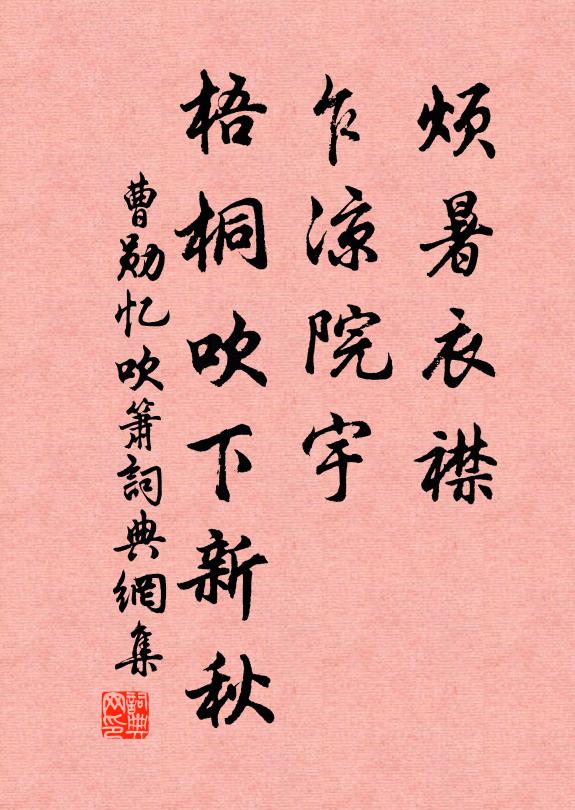 烦暑衣襟
乍凉院宇
梧桐吹下新秋
曹勋忆吹箫詞典網集
詞典网印